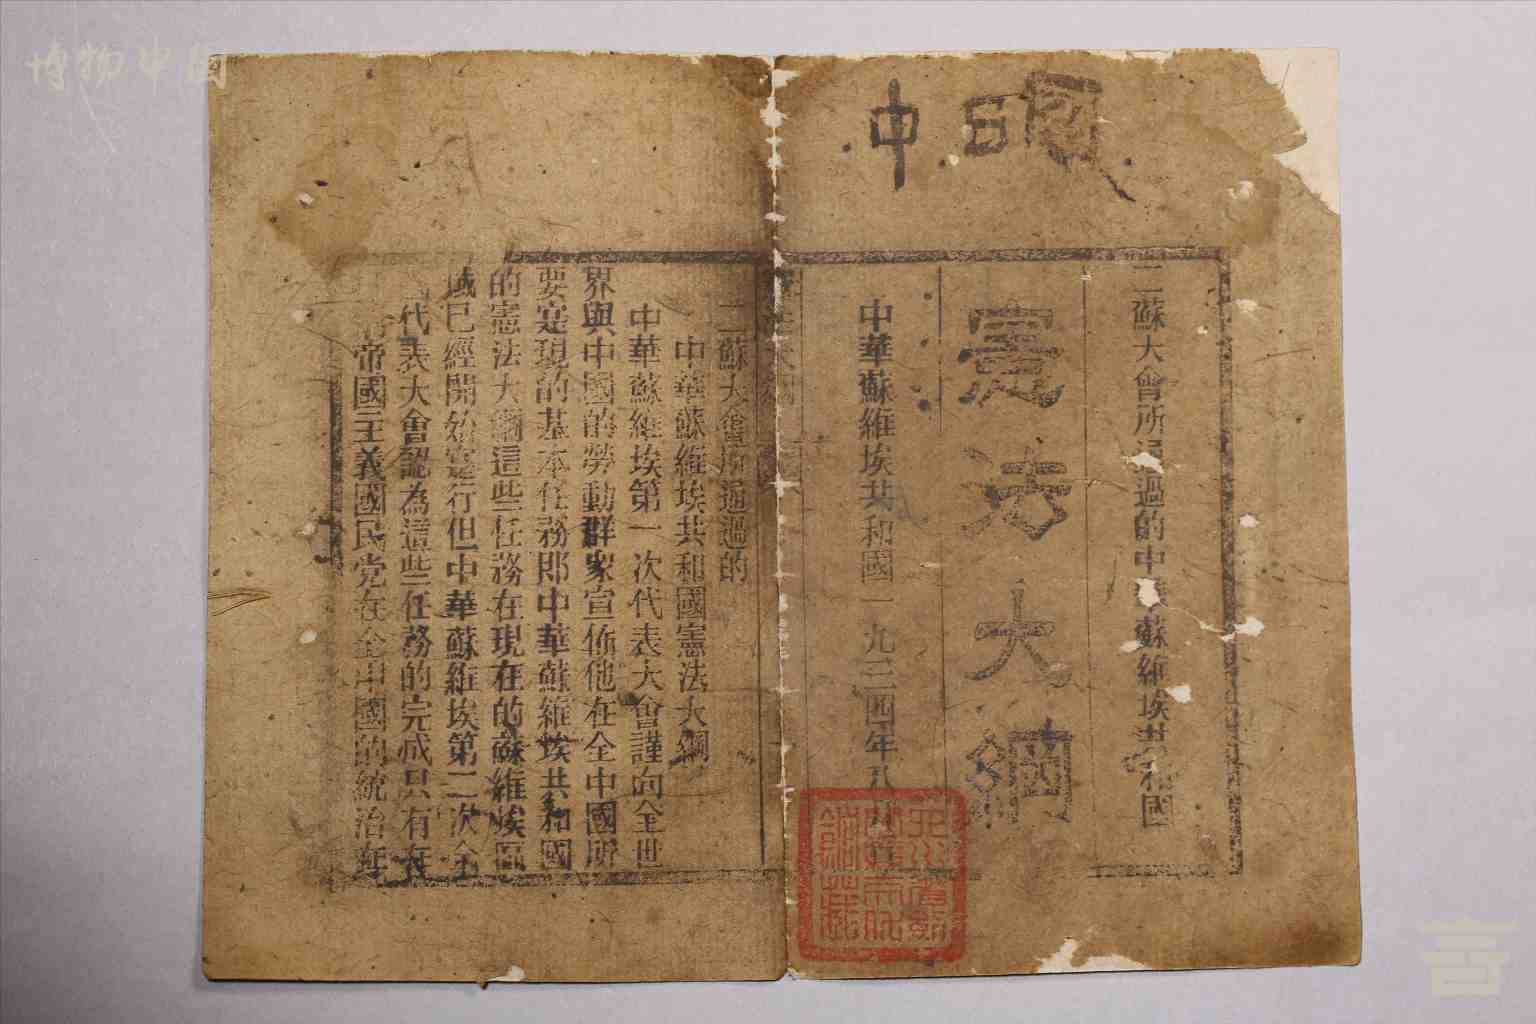 博物中国
中囗國
二蘇大會所通過的中華蘇維埃共和國
憲法大綱
中華蘇維埃共和國一九三四年八月
二蘇大會所通過的
中華蘇維埃共和國憲法大綱
中華蘇維埃第一次代表大會謹向全世
界與中國的勞動群衆宣佈他在全中國所
要寔現的基本任務即中華蘇維埃共和國
的憲法大綱這些任務在現在的蘇維埃區
域已經開始寔行但中華蘇維埃第二次全
代表大會認為這些任務的完成只有在
帝國主義國民党在全中國的統治在